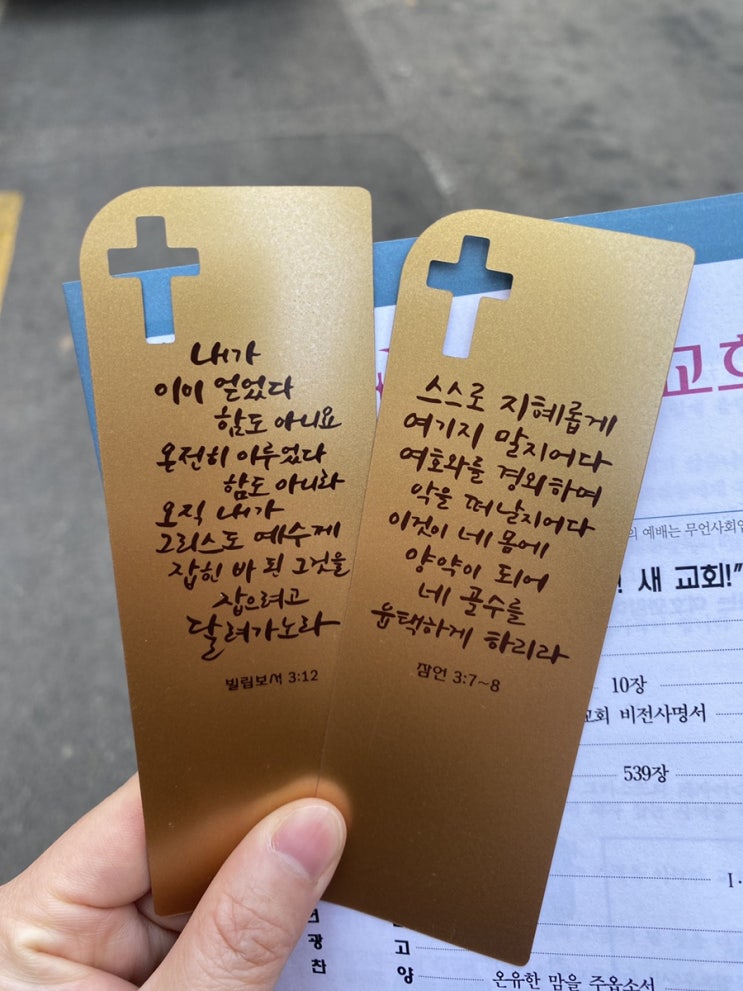 내가
이미 얻었다
함도 아니요
온전히 이루었다
함도 아니라
오직 내가
그리스도 예수께
잡힌 바 된 그것을
잡으려고
달려가노라
빌립보서 3:12
스스로 지혜롭게
여기지 말지어다
여호와를 경외하며
악을 떠날지어다
이것이 네 몸에
양약이 되어
네 골수를
윤택하게 하리라
잠언 3:7~8
교회
의 예배는 무언사회
! 새 교회!"
10장
교회 비전사명서
539장
광 고
찬 양
온유한 맘을 주옵소서